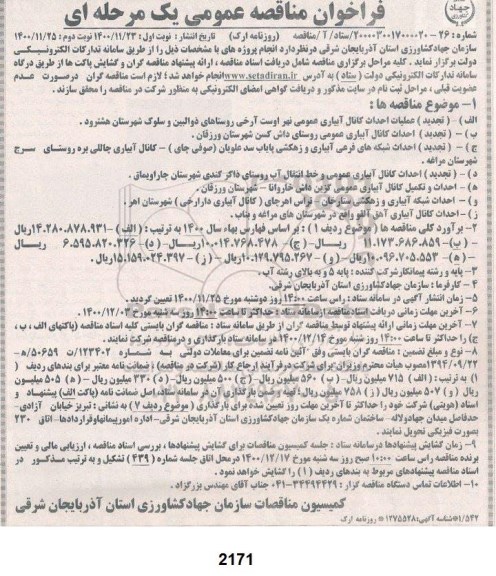 فراخوان مناقصه عمومی یک مرحله ای
شماره: ۲۶-۲۰۰۰۰۳۰۰۱۷۰۰۰۰۲۰/ستاد/ T /مناقصه (روزنامه ارک) تاریخ انتشار: نوبت اول: ۱۴۰۰/۱۱/۲۳ نوبت دوم: ۱۴۰۰/۱۱/۲۵
سازمان جهادکشاورزی استان آذربایجان شرقی درنظردارد انجام پروژه های با مشخصات ذیل را از طریق سامانه تدارکات الکترونیکی
دولت برگزار نماید. کلیه مراحل برگزاری مناقصه شامل دریافت اسناد مناقصه، ارائه پیشنهاد مناقصه گران و گشایش پاکت ها از طریق درگاه
سامانه تدارکات الکترونیکی دولت (ستاد) به آدرس www.setadiran.ir انجام خواهد شد؛ لازم است مناقصه گران درصورت عدم
عضویت قبلی، مراحل ثبت نام در سایت مذکور و دریافت گواهی امضای الکترونیکی به منظور شرکت در مناقصه را محقق سازند.
۱- موضوع مناقصه ها:
الف - (تجدید) عملیات احداث کانال آبیاری عمومی نهر اوست آرخی روستاهای ذوالبین و سلوک شهرستان هشترود.
ب - (تجدید) احداث کانال آبیاری عمومی روستای داش کسن شهرستان ورزقان.
ج - (تجدید) احداث شبکه های فرعی آبیاری و زهکشی پایاب سد علویان (صوفی چای) - کانال آبیاری چاللی بره روستای سرج
شهرستان مراغه.
د - (تجدید) احداث کانال آبیاری عمومی و خط انتقال آب روستای ذاکر کندی شهرستان چاراویماق.
ه - احداث و تکمیل کانال آبیاری عمومی کزین داش خاروانا - شهرستان ورزقان.
و - احداث شبکه آبیاری و زهکشی ستارخان - تراس اهرچای (کانال آبیاری دارارخی) شهرستان اهر.
ز - احداث کانال آبیاری آهق آلقو وایج در شهرستان های مراغه و بناب.
۲- برآورد کلی مناقصه ها (موضوع ردیف ۱): براساس فهارس بهاء سال ۱۴۰۰ به ترتیب: (الف) ۱۴.۲۸۰.۸۷۸.۹۳۱ ریال
- (ب) ۱۱.۱۷۳.۶۸۶.۸۵۹ ریال - (ج) ۱۰.۰۱۴.۷۶۸.۴۷۸ ریال - (د) ۶.۵۹۵.۸۲۰.۳۲۶ ریال
- (ه) ۱۰.۰۹۶.۷۰۵.۵۵۳ ریال - (و) ۱۰.۱۲۹.۷۹۵.۲۶۷ ریال - (ز) ۱۵.۱۵۹.۰۲۴.۳۹۷ ریال.
۳- پایه و رشته پیمانکار شرکت کننده: پایه ۵ و به بالای رشته آب.
۴- کارفرما: سازمان جهادکشاورزی استان آذربایجان شرقی.
۵- زمان انتشار آگهی در سامانه ستاد: راس ساعت ۱۴:۰۰ روز دوشنبه مورخ ۱۴۰۰/۱۱/۲۵ تعیین گردید.
۶- آخرین مهلت زمانی دریافت اسناد مناقصه از سامانه ستاد: حداکثر تا ساعت ۱۴:۰۰ روز سه شنبه مورخ ۱۴۰۰/۱۲/۰۳.
۷- آخرین مهلت زمانی ارائه پیشنهاد توسط مناقصه گران از طریق سامانه ستاد: مناقصه گران بایستی کلیه اسناد مناقصه (پاکتهای الف، ب،
ج) را حداکثر تا ساعت ۱۴:۰۰ روز شنبه مورخ ۱۴۰۰/۱۲/۱۴ در سامانه ستاد بارگذاری و در مناقصه شرکت نمایند.
۸- نوع و مبلغ تضمین: مناقصه گران بایستی وفق "آئین نامه تضمین برای معاملات دولتی به شماره ۱۲۳۴۰۲/ت ۵۰۶۵۹ ه-
۱۳۹۴/۰۹/۲۲ مصوب هیأت محترم وزیران برای شرکت درفرآیند ارجاع کار (شرکت در مناقصه) ضمانت نامه معتبر برای بندهای ردیف (
۱) به ترتیب: (الف) ۷۱۵ میلیون ریال - (ب) ۵۶۰ میلیون ریال - (ج) ۵۰۰ میلیون ریال - (د) ۳۳۰ میلیون ریال - (ه) ۵۰۵ میلیون
ریال - (و) ۵۰۷ میلیون ریال - (ز) ۷۵۸ میلیون ریال، تهیه و ضمن بارگذاری آن در سامانه ستاد، اصل ضمانت نامه (پاکت الف) پیشنهاد و
اسناد (هویتی) شرکت خود را حداکثر تا آخرین مهلت روز تعیین شده برای بارگذاری (موضوع ردیف ۷) به نشانی: تبریز خیابان آزادی-
حدفاصل میدان جهاد ولاله - ساختمان شماره یک سازمان جهادکشاورزی استان آذربایجان شرقی - اداره امورپیمانها و قراردادها - اتاق ۲۳۰
بصورت فیزیکی تحویل نمایند.
۹- زمان گشایش پیشنهادها درسامانه ستاد: جلسه کمیسیون مناقصات برای گشایش پیشنهادها، بررسی اسناد مناقصه، ارزیابی مالی و تعیین
برنده مناقصه راس ساعت ۱۰:۰۰ صبح روز سه شنبه مورخ ۱۴۰۰/۱۲/۱۷ درمحل اتاق جلسه شماره (۴۳۹) تشکیل و به ترتیب مذکور در
اسناد مناقصه پیشنهادهای مربوط به بندهای ردیف (۱) را گشایش خواهد نمود.
۱۰- اطلاعات تماس دستگاه مناقصه گزار: ۳۴۴۹۴۴۲۹-۰۴۱ جناب آقای مهندس برزگزاد.
کمیسیون مناقصات سازمان جهادکشاورزی استان آذربایجان شرقی
۱/۵۴۲ شناسه آگهی: ۱۲۷۵۵۲۸ روزنامه ارک
2171